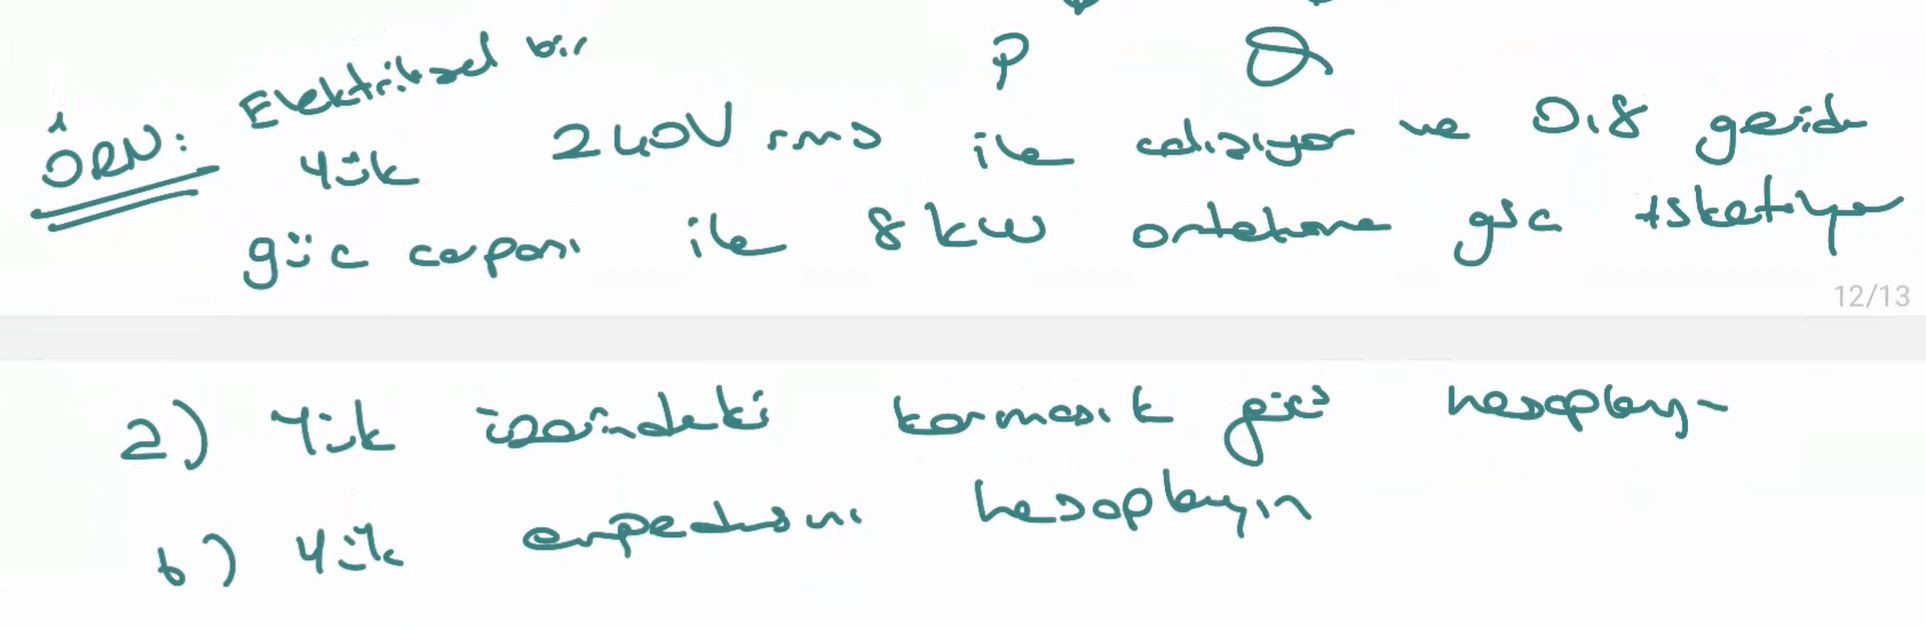 P Q
ÖRN: Elektriksel bir
yük 240V rms ile çalışıyor ve 0.8 geride
güç çarpanı ile 8 kW ortalama güc tüketiyor
12/13
a) Yük üzerindeki karmaşık gücü hesaplay-
b) Yük empedansını hesaplayın